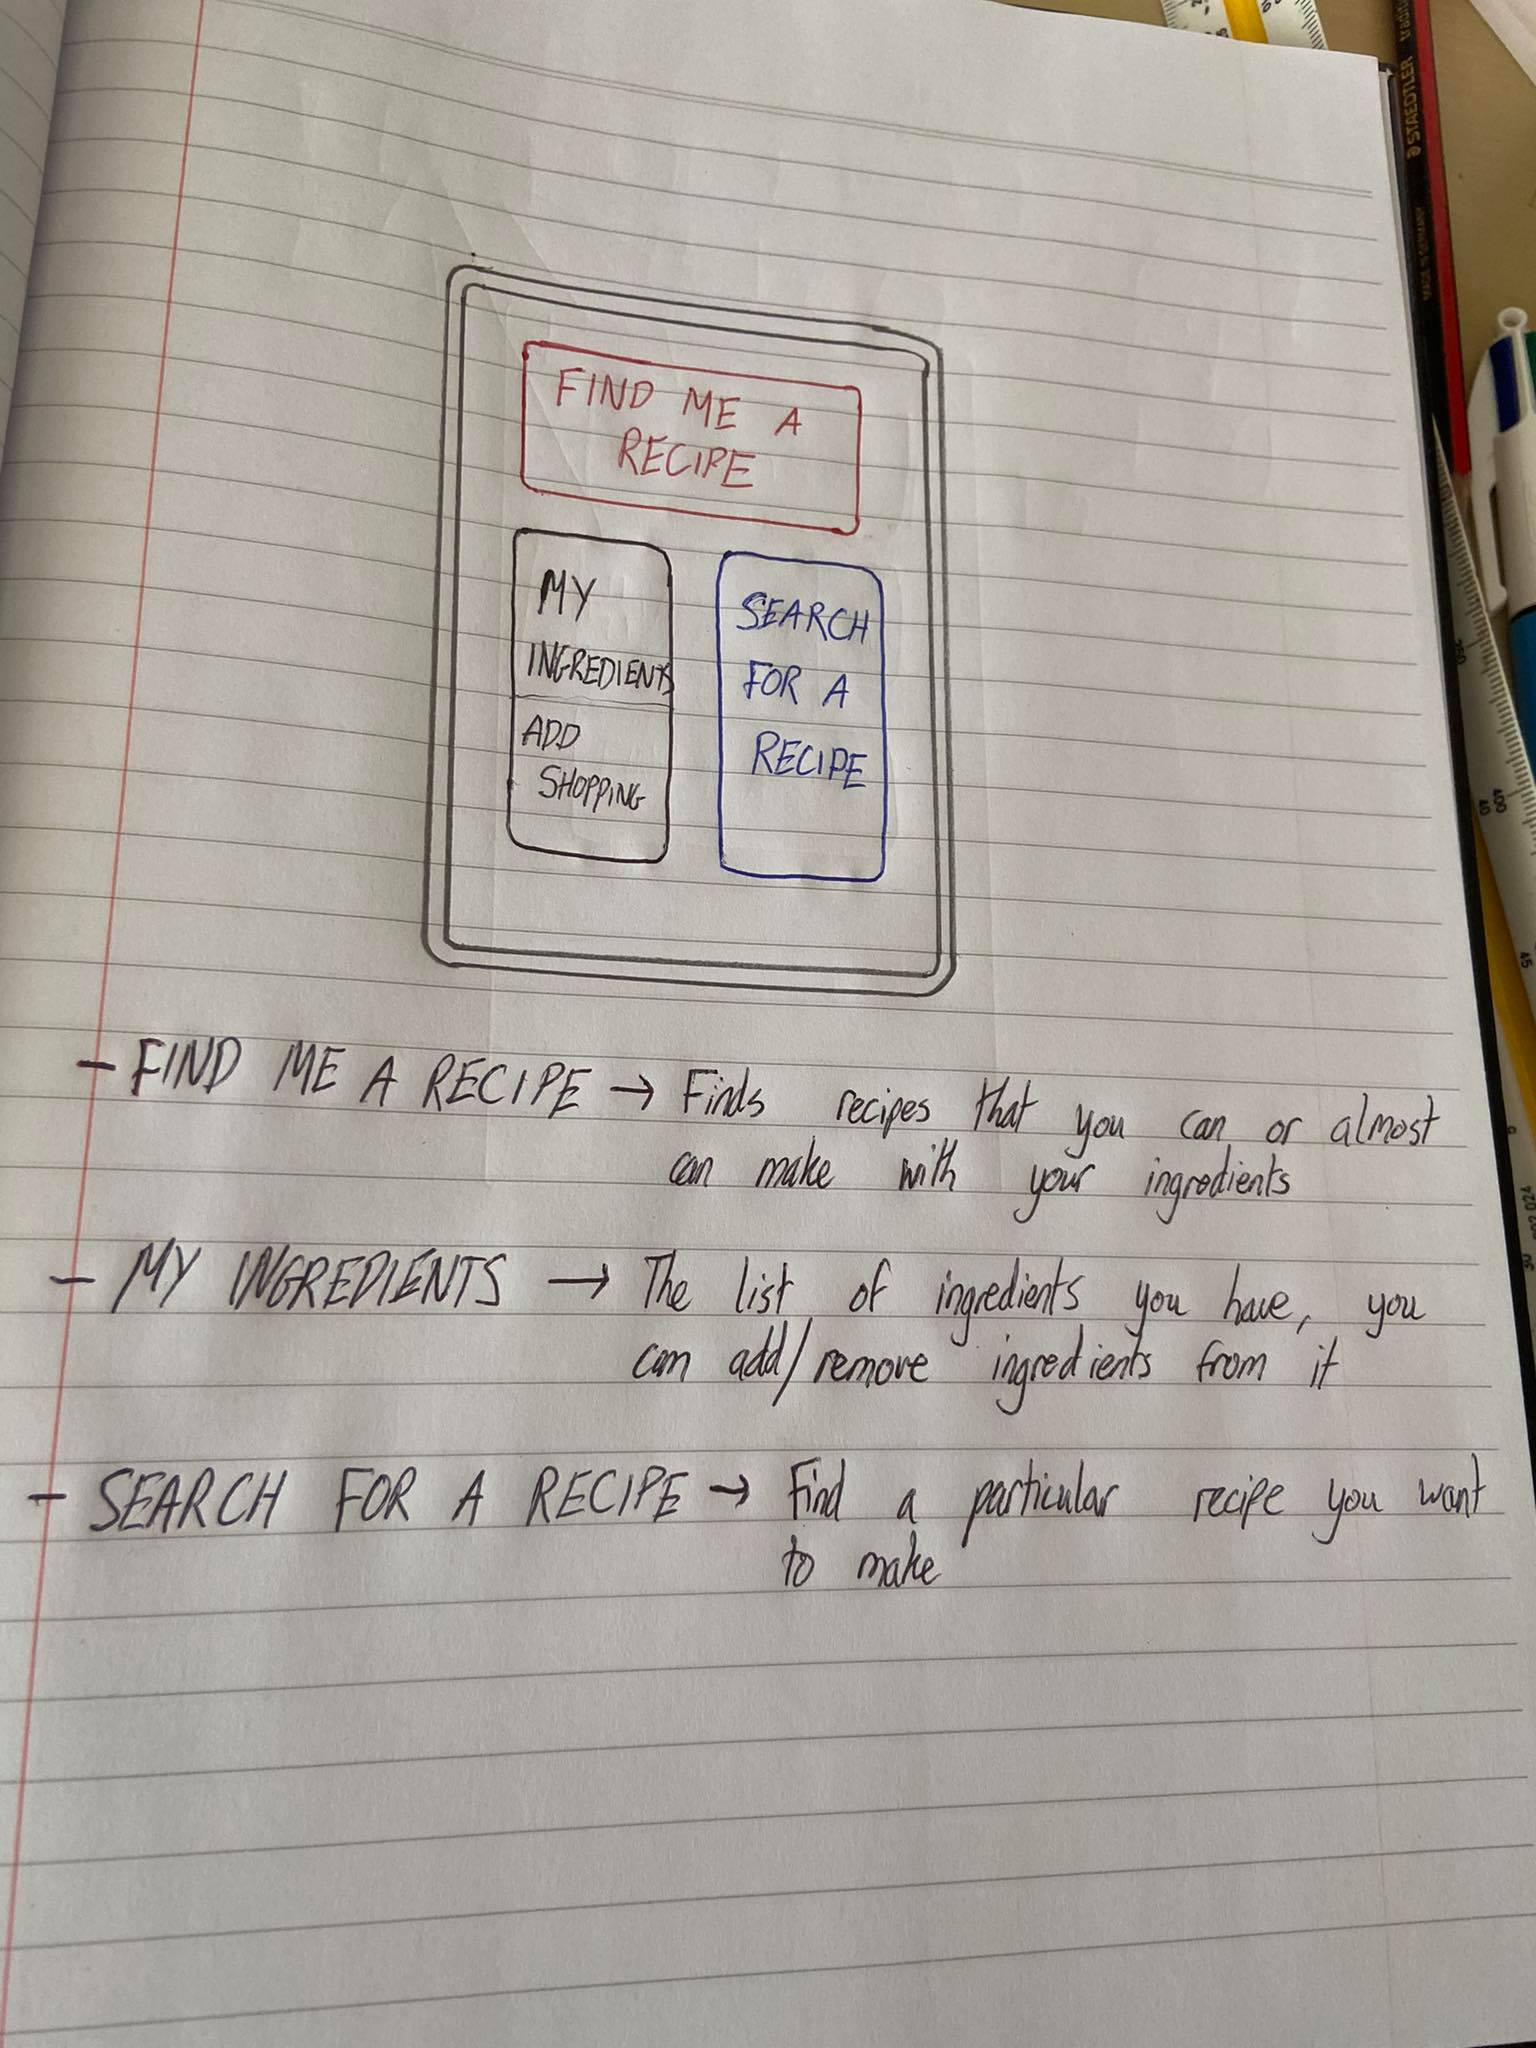 FIND ME A
RECIPE
MY
INGREDIENTS
ADD
SHOPPING
SEARCH
FOR A
RECIPE
- FIND ME A RECIPE → Finds recipes that you can or almost
can make with your ingredients
- MY INGREDIENTS → The list of ingredients you have, you
can add/remove ingredients from it
- SEARCH FOR A RECIPE → Find a particular recipe you want
to make
STAEDTLER
MADE IN GERMANY